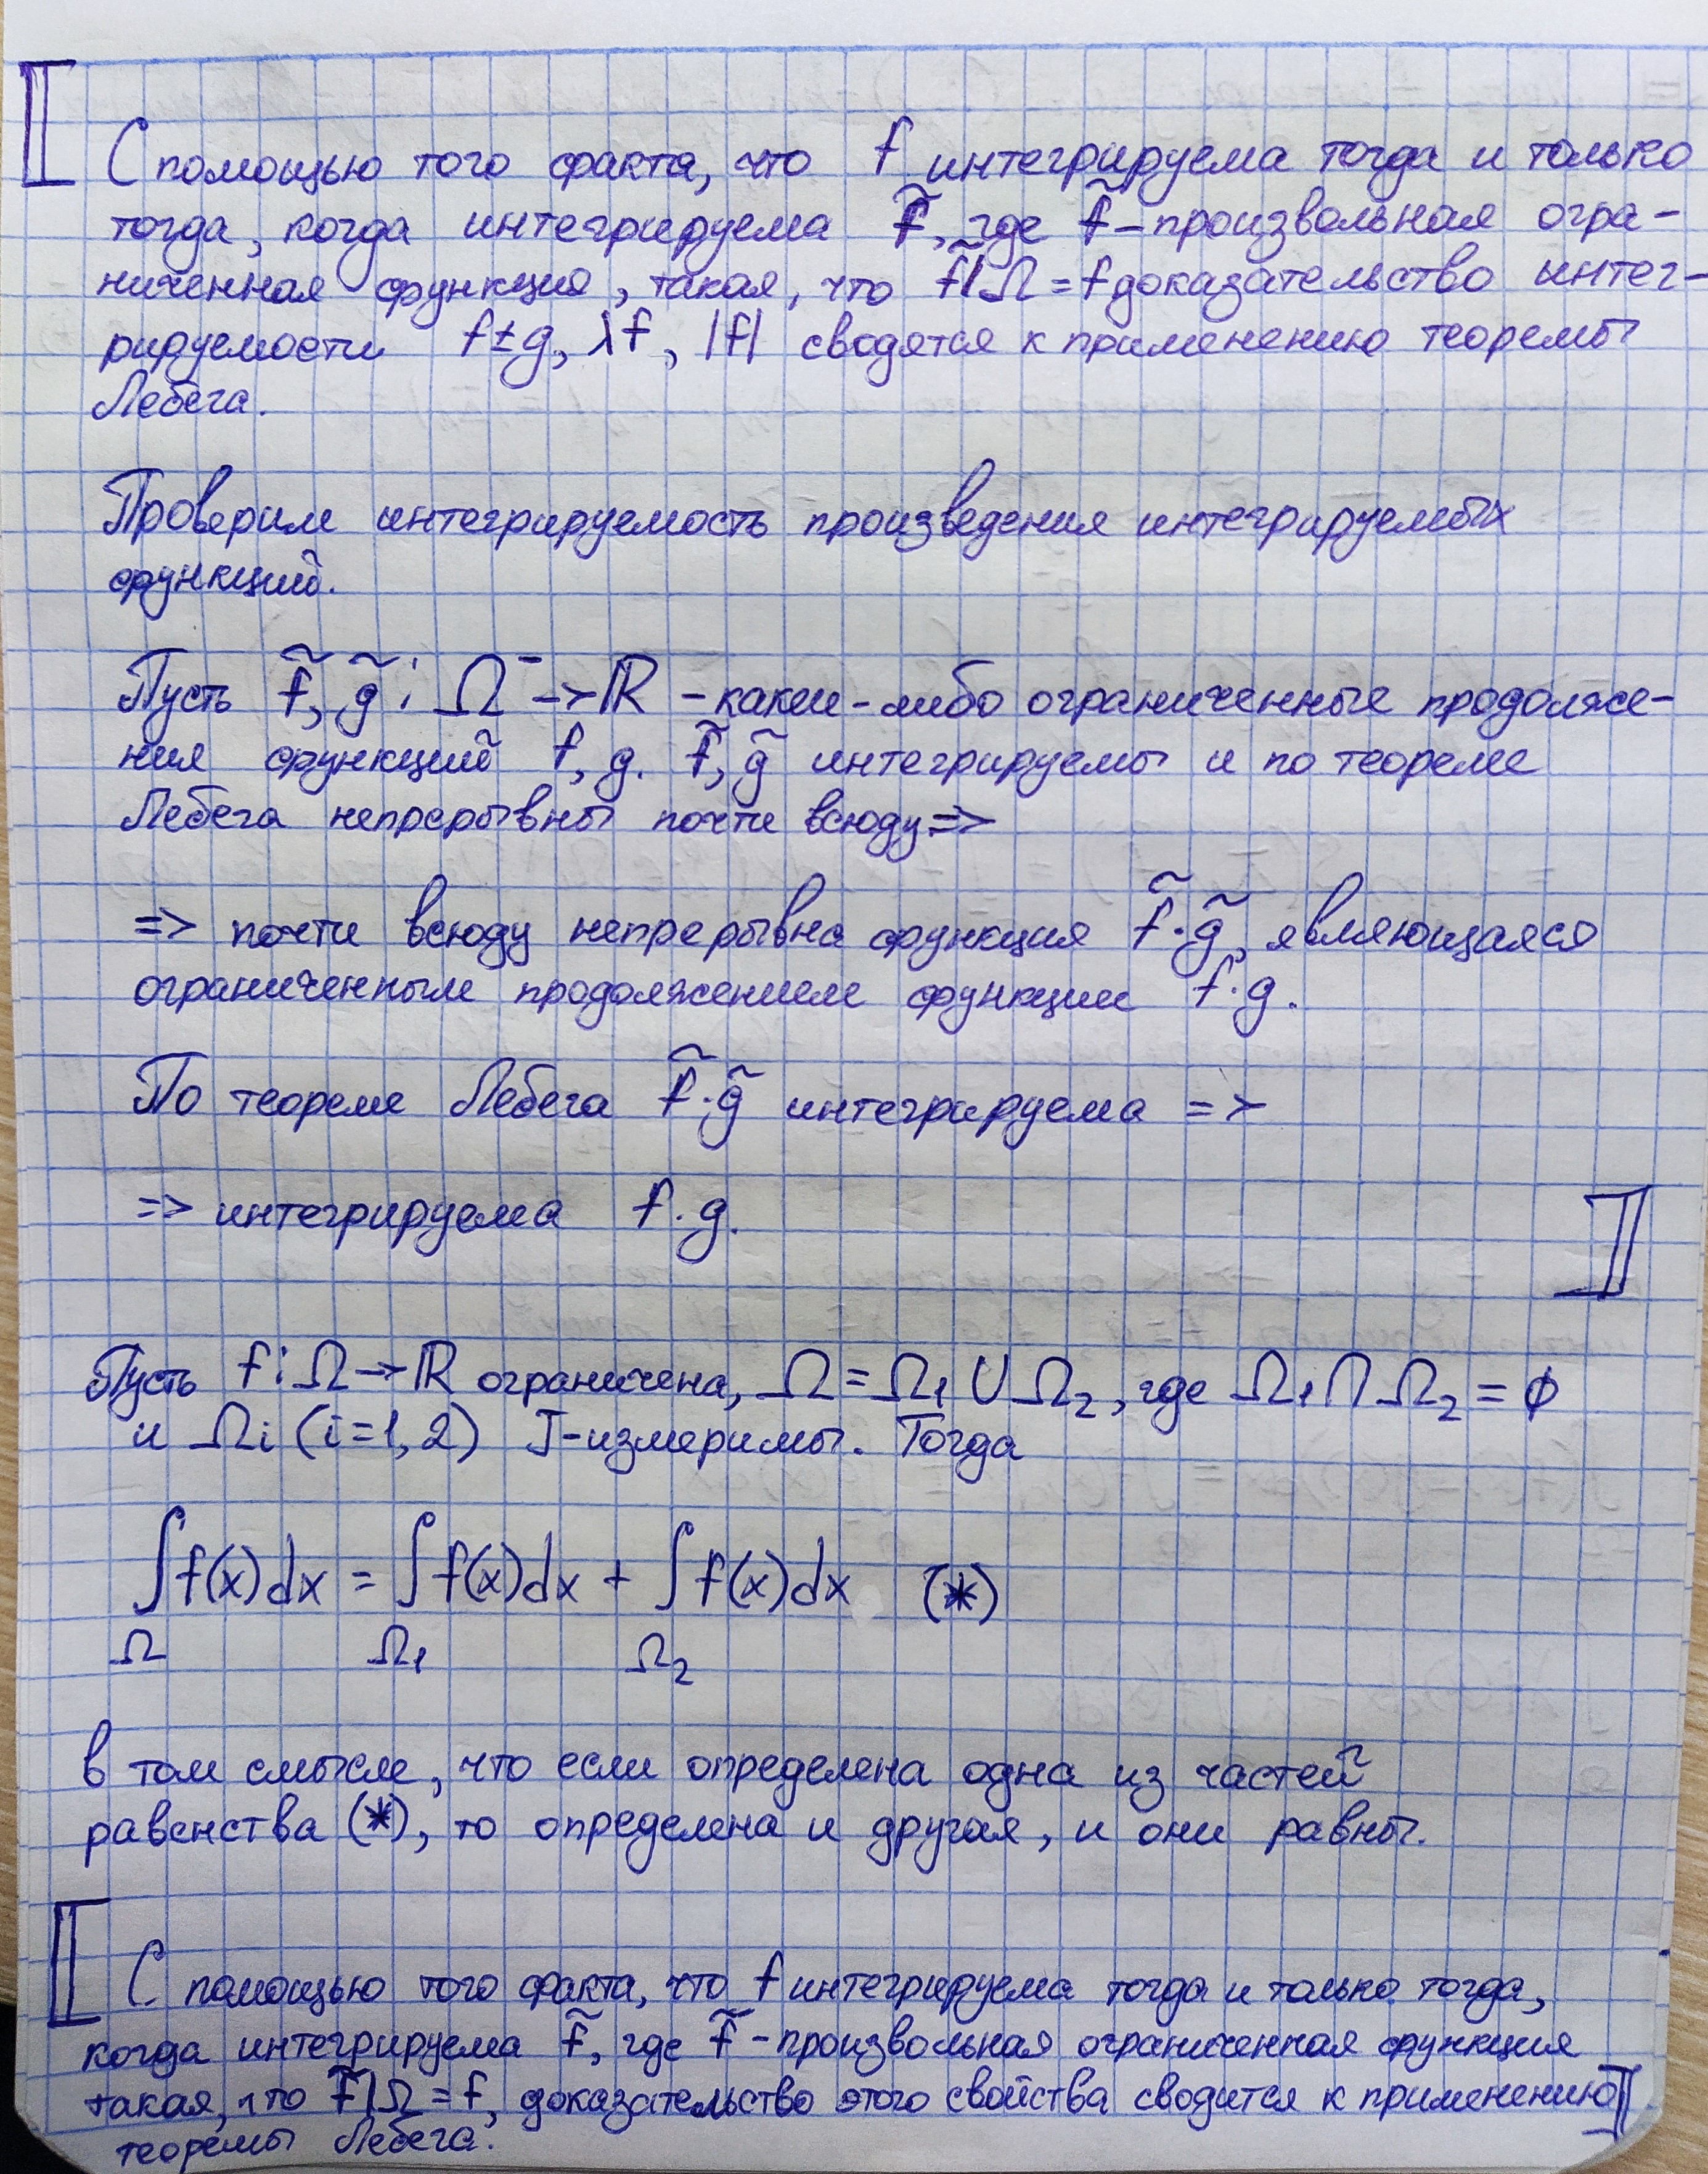 ⟦ С помощью того факта, что f интегрируема тогда и только
тогда, когда интегрируема f̃, где f̃ – произвольная огра-
ниченная функция, такая, что f̃|Ω = f доказательство интег-
рируемости f±g, λf, |f| сводятся к применению теоремы
Лебега.
Проверим интегрируемость произведения интегрируемых
функций.
Пусть f̃, g̃ : Ω̄ -> ℝ – какие-либо ограниченные продолже-
ния функций f, g. f̃, g̃ интегрируемы и по теореме
Лебега непрерывны почти всюду =>
=> почти всюду непрерывна функция f̃·g̃, являющаяся
ограниченным продолжением функции f·g.
По теореме Лебега f̃·g̃ интегрируема =>
=> интегрируема f·g. ⟧
Пусть f: Ω -> ℝ ограничена, Ω = Ω₁ ∪ Ω₂, где Ω₁ ∩ Ω₂ = ∅
и Ωi (i=1,2) J-измеримы. Тогда
∫f(x)dx = ∫f(x)dx + ∫f(x)dx (*)
Ω Ω₁ Ω₂
в том смысле, что если определена одна из частей
равенства (*), то определена и другая, и они равны.
⟦ С помощью того факта, что f интегрируема тогда и только тогда,
когда интегрируема f̃, где f̃ - произвольная ограниченная функция
такая, что f̃|Ω = f, доказательство этого свойства сводится к применению
теоремы Лебега. ⟧